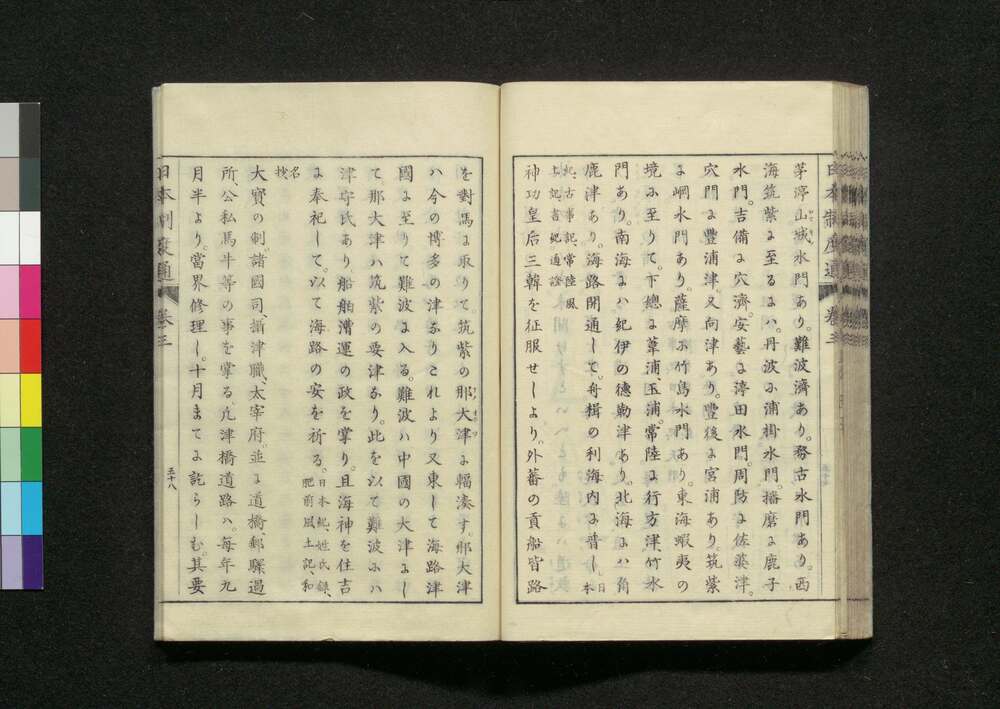 茅渟山城水門あり。難波濟あり。務古水門あり。西
海筑紫に至るには、丹波に浦掛水門。播磨に鹿子
水門。吉備に穴濟。安藝に渟田水門。周防に佐婆津。
穴門に豊浦津。又向津あり。豊後に宮浦あり。筑紫
に崗水門あり。薩摩に竹島水門あり。東海蝦夷の
境に至りて。下總に葦浦、玉浦。常陸に行方津、竹水
門あり。南海には紀伊の德勒津あり。北海には角
鹿津あり。海路開通して。舟楫の利海内に普し、日本
紀、古事記、常陸風
土記、書紀通證
神功皇后三韓を征服せしより。外蕃の貢船皆路
日本制度通 卷三
を對馬に取りて。筑紫の那大津に輻湊す。那大津
は今の博多の津なりこれより又東して海路津
國に至りて難波に入る。難波は中國の大津にし
て。那大津は筑紫の要津なり。此を以て難波には
津守氏あり。船舶漕運の政を掌り。且海神を住吉
に奉祀して。以て海路の安を祈る。日本紀、姓氏録、
肥前風土記、和
名
抄
大寶の制。諸國司、攝津職、太宰府。並に道橋、郵驛過
所、公私馬牛等の事を掌る。凡津橋道路は。毎年九
月半より。當界修理し。十月までに訖らしむ。其要
日本制度通 卷三
五十八